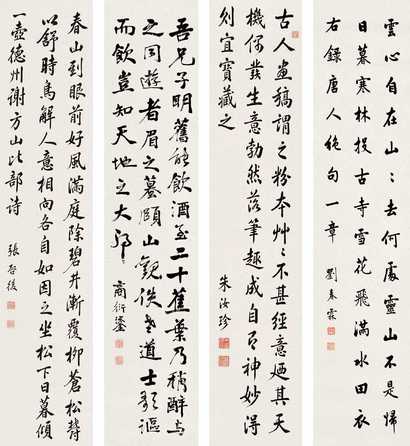 雲心自在山々去何處靈山不是歸
日暮寒林投古寺雪花飛滿水田衣
右錄唐人絕句一章
劉春霖
古人畫稿謂之粉本艸々不甚經意處其天
機偶發生意勃然落筆趣成自有神妙得
則宜寶藏之
朱汝珍
吾兄子明舊能飲酒至二十蕉葉乃稍醉與
之同遊者眉之蟇頤山觀侯老道士歌謳
而飲豈知天地之大邪
商衍鎏
春山到眼前好風滿庭除碧井漸覆柳蒼松聲
以舒時鳥解人意相向各自如因之坐松下日暮傾
一壺德州謝方山比部詩
張啓後